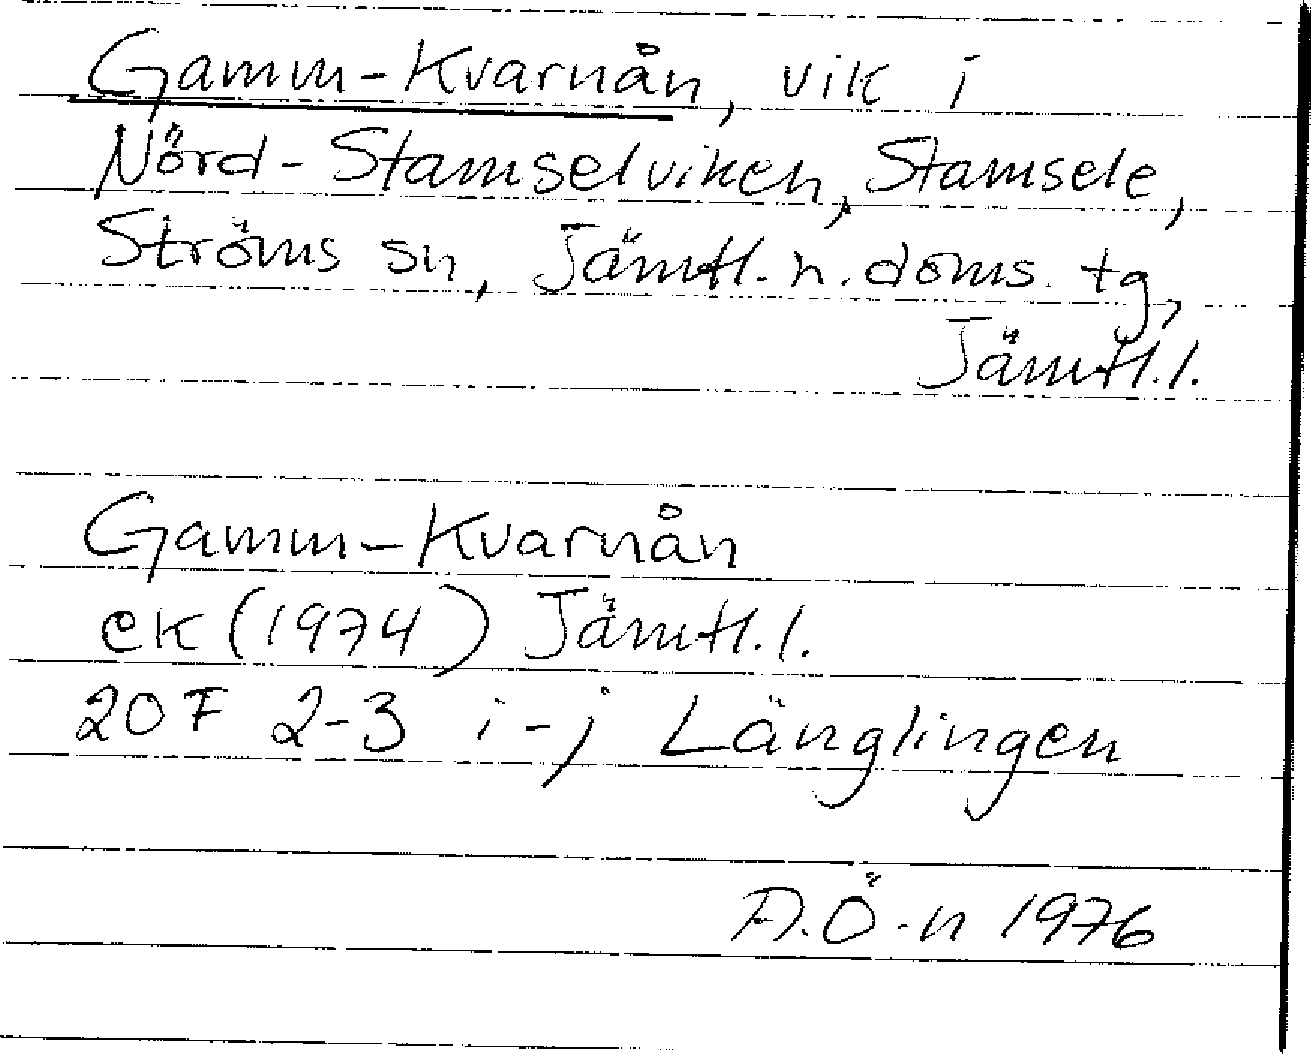 Gamm-Kvarnån, vik i
Nörd-Stamselviken, Stamsele,
Ströms sn, Jämtl. n. doms. tg,
Jämtl.l.
Gamm-Kvarnån
ek (1974) Jämtl.l.
20F 2-3 i-j Länglingen
A.Ö-n 1976